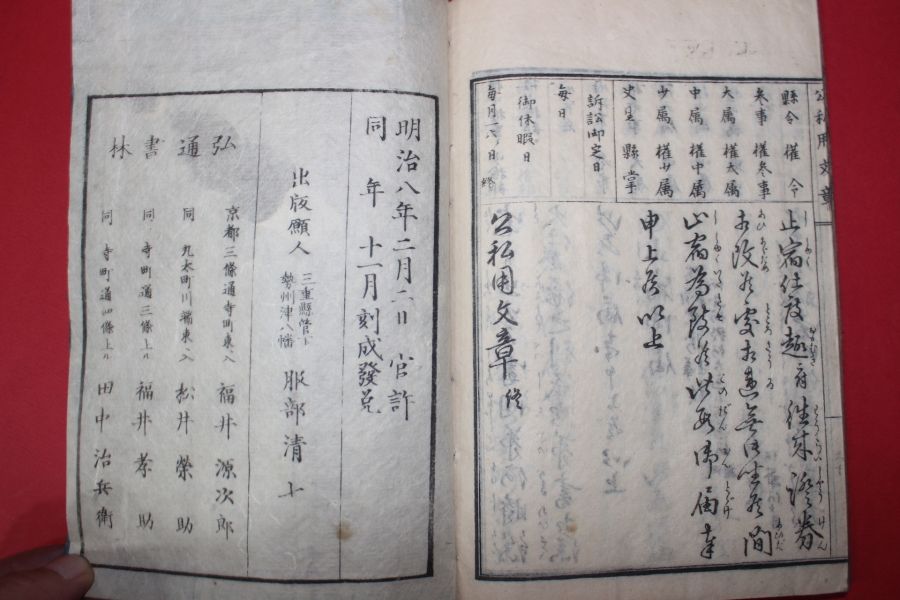 公私用文章
縣令 權令
參事 權參事
大属 權大属
中属 權中属
少属 權少属
史生 縣掌
訴訟御定日
毎日
御休暇日
毎月六ノ日 終
止宿仕度趣ニ付往来證券
相改候處相違無御坐候間
止宿為致候此段御届奉
申上候以上
公私用文章 終
明治八年二月二日 官許
同年十一月刻成發兌
出版願人
三重縣管下
勢州津八幡
服部清七
弘通書林
京都三條通寺町東ヘ入 福井源次郎
同 丸太町川端東ヘ入 松井榮助
同 寺町通三條上ル 福井孝助
同 寺町通四條上ル 田中治兵衛